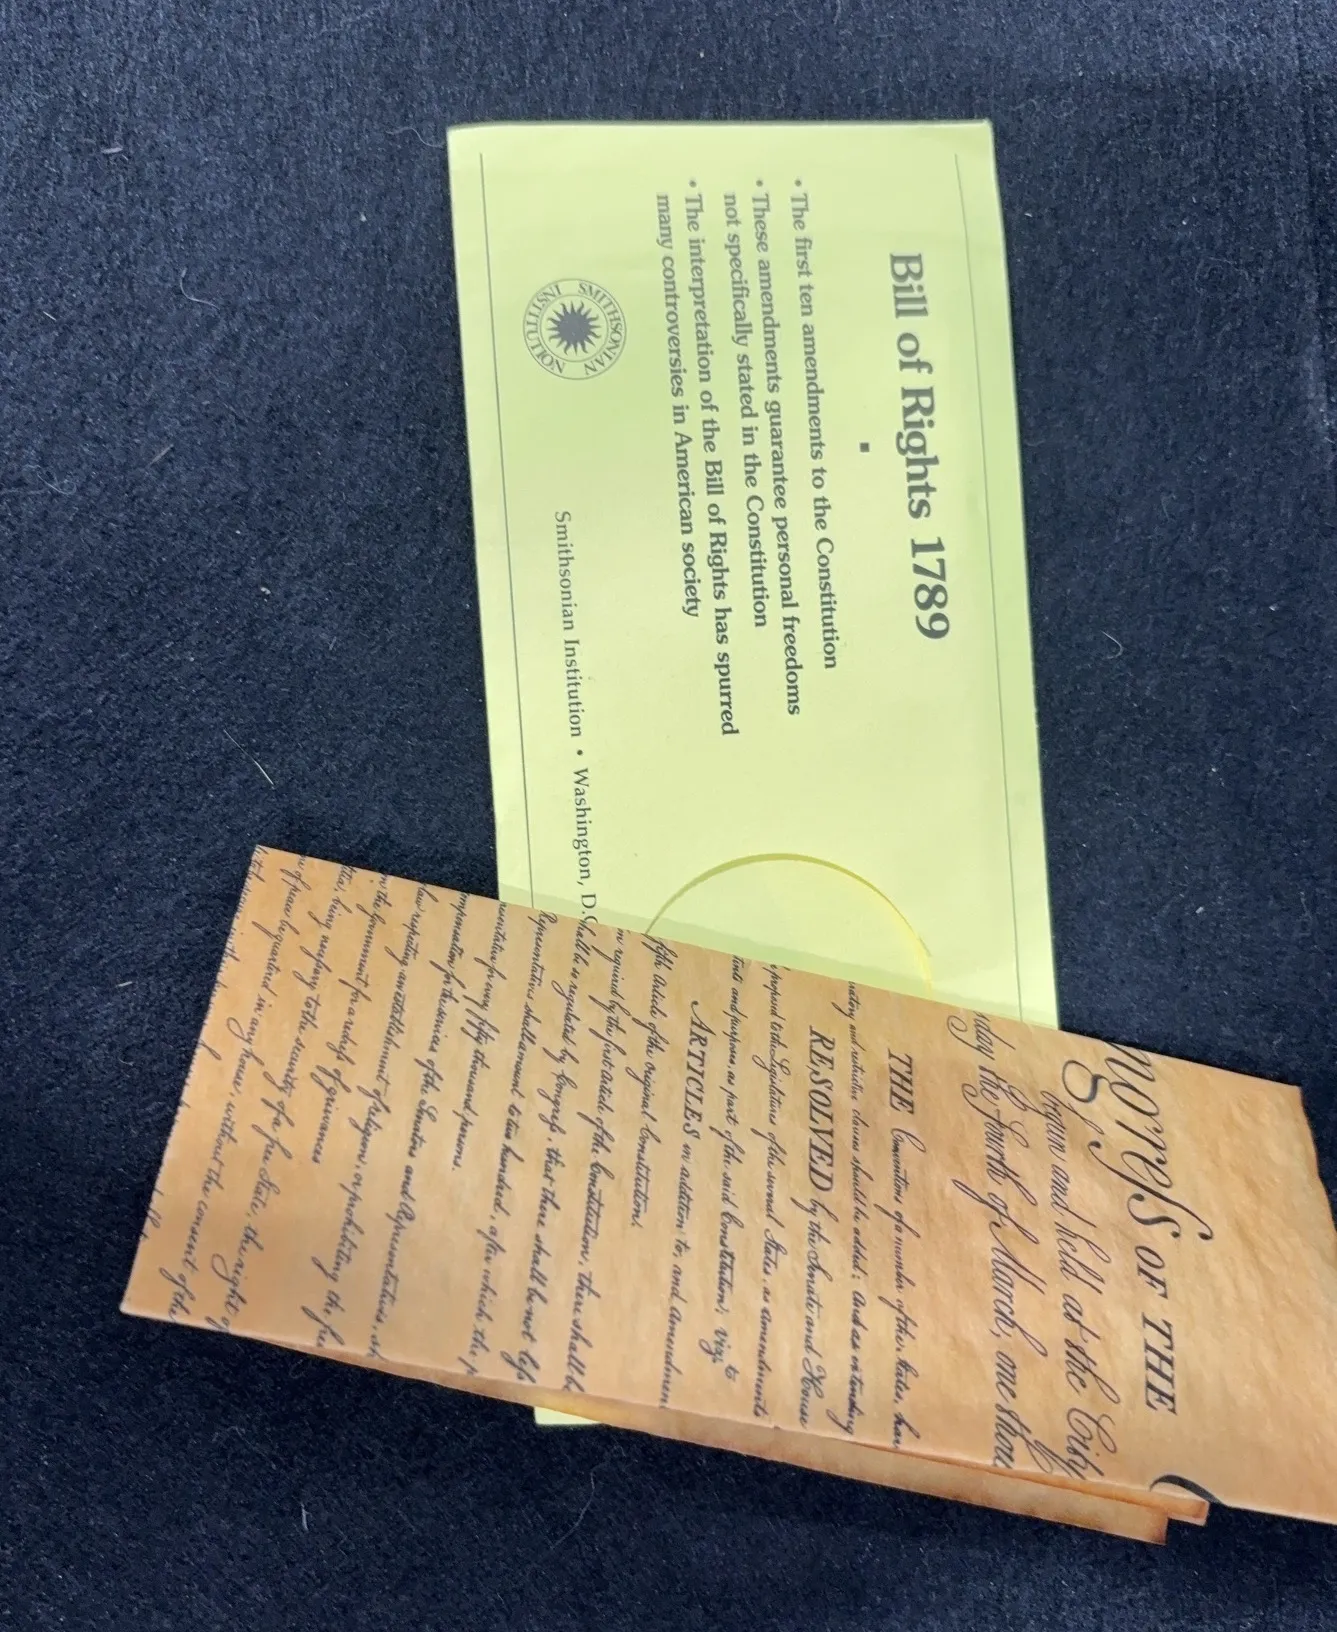 Bill of Rights 1789
• The first ten amendments to the Constitution
• These amendments guarantee personal freedoms
not specifically stated in the Constitution
• The interpretation of the Bill of Rights has spurred
many controversies in American society
SMITHSONIAN INSTITUTION
Smithsonian Institution • Washington, D.C
ongreſs OF THE
begun and held at the City
day the fourth of March, one thou
THE Convention of a number of the States, hav
uatory and restrictive clauses should be added: And as extending
RESOLVED by the Senate and House
proposed to the Legislatures of the several States, as amendments
tents and purposes, as part of the said Constitution; vizt
ARTICLES in addition to, and Amendmen
fifth Article of the original Constitution.
required by the first article of the Constitution, there shall b
shall be so regulated by Congreſs, that there shall be not leſs
Representatives shall amount to two hundred, after which the p
sentative for every fifty thousand persons.
mpensation for the services of the Senators and Representatives, sh
law respecting an establishment of religion, or prohibiting the fre
n the Government for a redreſs of grievances
tia, being neceſsary to the security of a free State, the right of
of peace be quartered in any house, without the consent of the